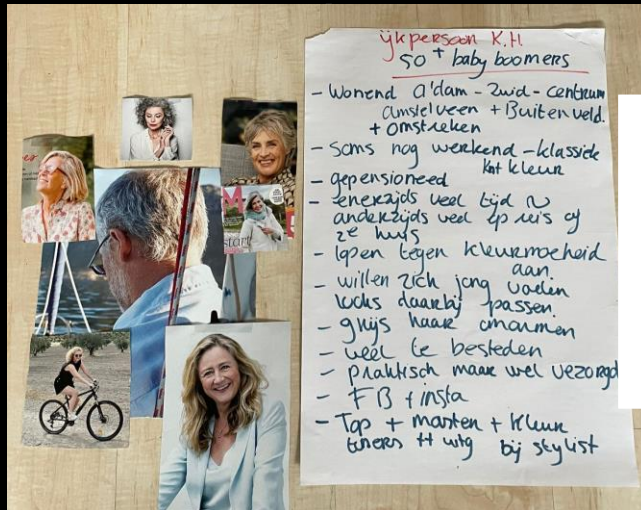 ijkpersoon K.H.
50+ baby boomers
- Wonend a'dam - Zuid - centrum
amstelveen + Buitenveld.
+ omstreken
- Soms nog werkend - klassiek
knt kleur
- gepensioneerd
- enerzijds veel tijd
anderzijds veel op reis of
2e huis
- lopen tegen kleurmoeheid
aan.
- willen zich jong voelen
looks daarbij passen.
- grijs haar omarmen
- veel te besteden
- praktisch maar wel verzorgd
- FB + insta
- Top + manten + kleur
tt uitg bij stylist
M
start
es